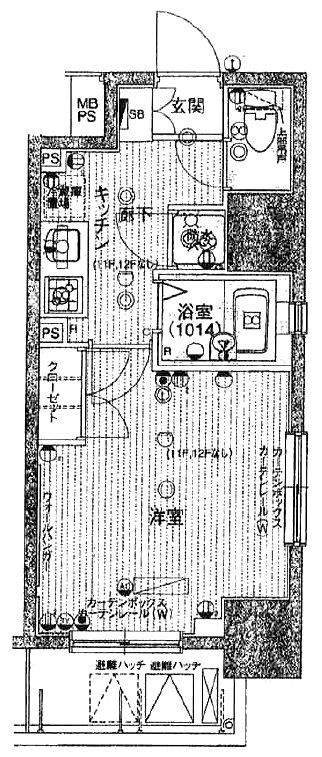 MB
PS
SB
玄関
上部吊戸
PS
冷蔵庫
置場
キッチン
廊下
防水
(11F,12Fなし)
浴室
(1014)
PS
R
R
クローゼット
(11F,12Fなし)
カーテンボックス
カーテンレール(W)
洋室
ウォールハンガー
カーテンボックス
カーテンレール(W)
避難ハッチ 避難ハッチ